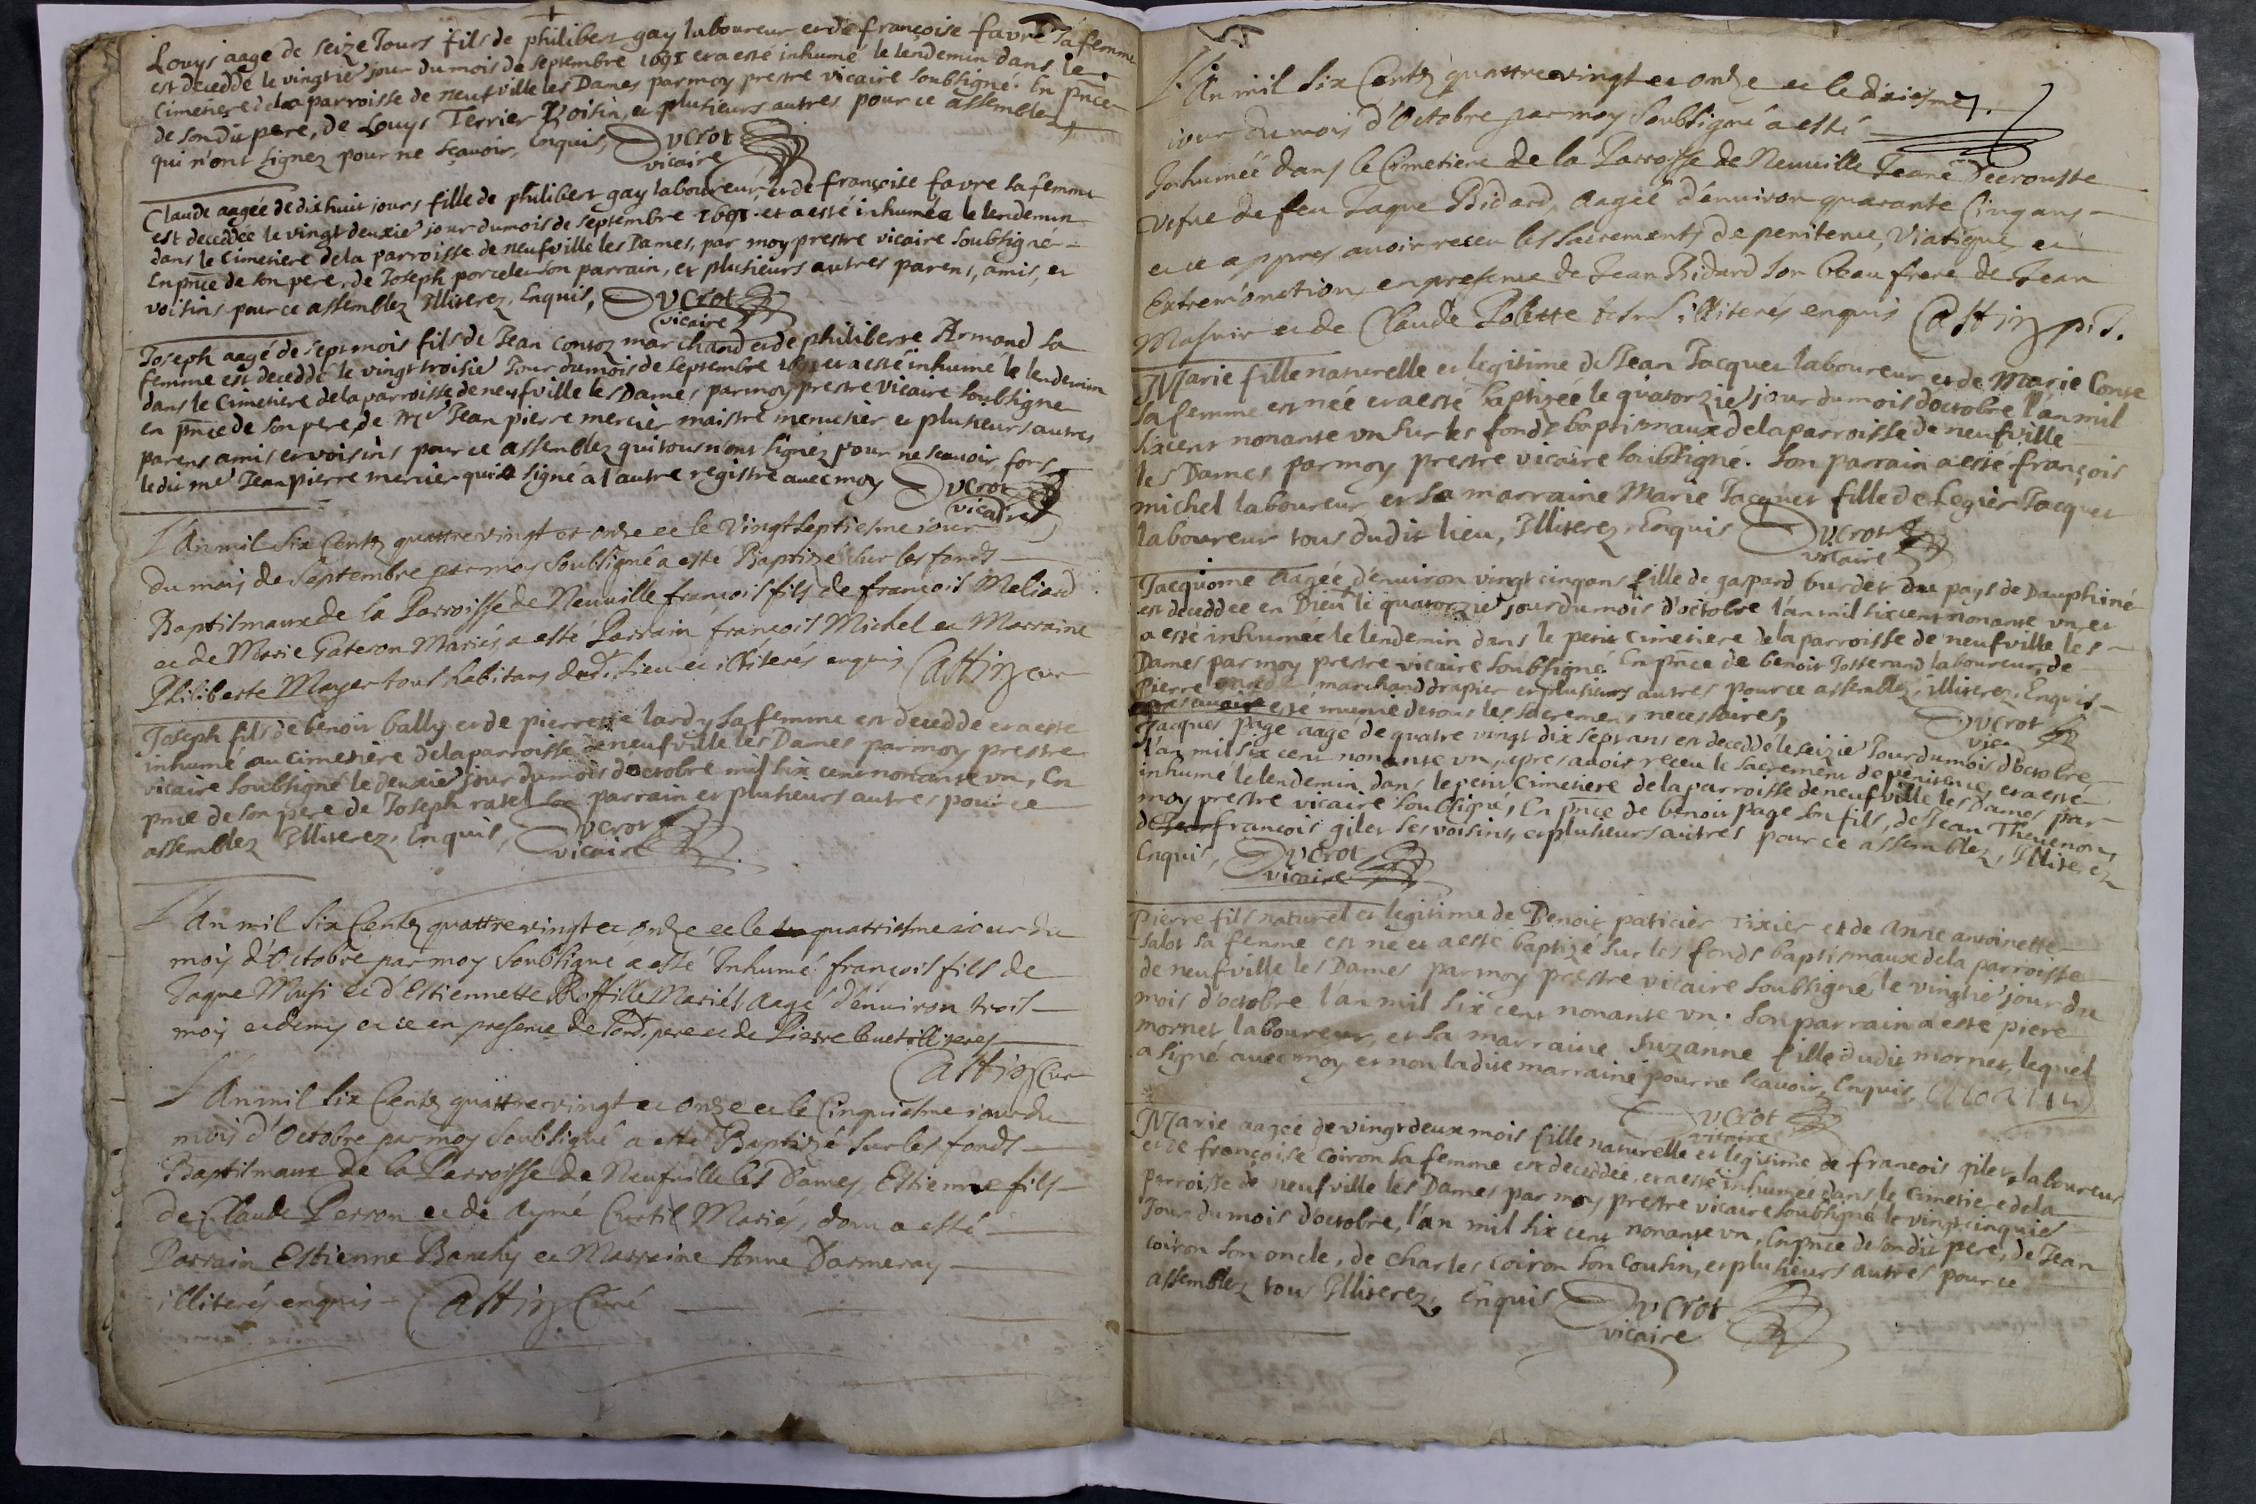 Louys aagé de seize Jours fils de philibert gay laboureur et de françoise favre sa femme
est decedde le vingtie jour du mois de septembre 1691 et a esté inhumé le lendemin dans le
Cimetiere de la parroisse de neufville les Dames par moy prestre vicaire soubsigné. En pnce
de son dit pere, de Louys Terrier Voisin, et plusieurs autres pour ce assemblez
qui n'ont signez pour ne sçavoir, Enquis, Ducrot
vicaire
Claude aagée de dix huit jours fille de philibert gay laboureur et de françoise favre sa femme
est deceddée le vingt deuxie jour du mois de septembre 1691 et a esté inhumée le lendemin
dans le Cimetiere de la parroisse de neufville les Dames, par moy prestre vicaire soubsigné
En pnce de son pere, de Joseph porcelet son parrain, et plusieurs autres parens, amis, et
voisins pour ce assemblez Illiterez, Enquis, Ducrot
vicaire
Joseph aagé de sept mois fils de Jean Contoz marchand et de philiberte Armand sa
femme est deceddé le vingt troisie Jour du mois de septembre 1691 et a esté inhumé le lendemin
dans le Cimetiere de la parroisse de neufville les Dames par moy prestre vicaire soubsigne
en pnce de son pere, de Me Jean pierre mercier maistre menusier et plusieurs autres
parens amis et voisins pour ce assemblez qui tous n'ont signez pour ne scavoir fors
le dit me Jean pierre mercier qui a signé a l'autre registre avec moy Ducrot
vicaire
L'An mil six Centz quattre vingt et onze et le Vingt septiesme jour
du mois de Septembre par moy soubsigné a esté Baptizé sur les fonds
Baptismaux de la Parroisse de Neuuille françois fils de françois Meliard
et de Marie Gateron Mariés, a esté Parrain françois Michel et Marraine
Philiberte Mayer tous habitans dud. Lieu et illiterés enquis Cattin cur
Joseph fils de benoit bally et de pierrette lardy sa femme est decedde et a este
inhumé au cimetiere de la parroisse de neufville les Dames par moy prestre
vicaire soubsigné le deuxie jour du mois doctobre mil six cent nonante vn, En
pnce de son pere de Joseph ratel son parrain et plusieurs autres pour ce
assemblez Illiterez, Enquis, Ducrot
vicaire
L'An mil six Centz quattre vingt et onze et le quatriesme jour du
mois d'Octobre par moy soubsigné a esté Inhumé françois fils de
Jaque Musi et d'Estiennette Roffille Mariés aagé d'enuiron trois
mois et demy et ce en presence de sond. pere et de Pierre buet illiteres
Cattin Cur
L'An mil six Centz quattre vingt et onze et le Cinquiesme jour du
mois d'Octobre par moy soubsigné a esté Baptizé sur les fonds
Baptismaux de la Parroisse de Neufuille les Dames, Estienne fils
de Claude Perron et de Aymé Curtil Mariés, dont a esté
Parrain Estienne Banchy et Marraine Anne Darmeray
illiterés enquis Cattin Curé
L'An mil six Centz quattre vingt et onze et le dixiesme
jour du mois d'Octobre par moy soubsigné a esté
Inhumée dans le Cimetiere de la Parroisse de Neuuille Jeane Decrouste
vefue de feu Jaque Bidard, Aagée d'enuiron quarante Cinq ans
et ce appres auoir receu les sacrements de penitence, Viatique et
Extrem'onction, en presence de Jean Bidard son beau frere de Jean
Masuir et de Claude Polette illiterés enquis Cattin p.r.
Marie fille naturelle et legitime de Jean Jacquet laboureur et de Marie Conte
sa femme est née et a esté baptizée le quatorzie jour du mois d'octobre l'an mil
six cent nonante vn sur les fonds baptismaux de la parroisse de neufville
les Dames par moy prestre vicaire soubsigné. son parrain a esté françois
michel laboureur et sa marraine Marie Jacquet fille de Legier Jacquet
laboureur tous dudit lieu, Illiterez, Enquis Ducrot
vicaire
Jacquome Aagée d'enuiron vingt cinq ans fille de gaspard burdet du pays de Dauphiné
est deceddee en Dieu le quatorzie jour du mois d'octobre l'an mil six cent nonante vn et
a esté inhumée le lendemin dans le petit cimetiere de la parroisse de neufville les
Dames par moy prestre vicaire soubsigné En pnce de benoit Josserand laboureur, de
Pierre marchand drapier et plusieurs autres pour ce assemblez, illiterez, Enquis
apres auoir esté munie de tous les sacremens necessaires, Ducrot
vic
Jacques page aagé de quatre vingt dix sept ans est decedde le seizie Jour du mois d'octobre
l'an mil six cent nonante vn, apres auoir receu le sacrement de penitence, et a este
inhumé le lendemin dans le petit Cimetiere de la parroisse de neufville les Dames par
moy prestre vicaire soubsigné, En pnce de benoit page son fils, de Jean Theuenon,
de francois gilet ses voisins, et plusieurs autres pour ce assemblez, Illiterez
Enquis, Ducrot
vicaire
Pierre fils naturel et legitime de Benoit paticier Tixier et de Anne antoinette
salot sa femme est ne et a esté baptizé sur les fonds baptismaux de la parroisse
de neufville les Dames par moy prestre vicaire soubsigné le vingtie jour du
mois d'octobre l'an mil six cent nonante vn. son parrain a esté piere
mornet laboureur, et sa marraine suzanne fille dudit mornet, lequel
a signé avec moy, et non ladite marraine pour ne scavoir, Enquis,
Ducrot
vicaire
Marie aagée de vingt deux mois fille naturelle et legitime de francois gilet, laboureur
et de françoise Coiron sa femme est deceddée, et a esté inhumée dans le Cimetiere de la
Parroisse de neufville les Dames par moy prestre vicaire soubsigné le vingt cinquie
Jour du mois d'octobre, l'an mil six cent nonante vn, En pnce de son dit pere, de Jean
coiron son oncle, de Charles Coiron son Cousin, et plusieurs autres pour ce
assemblez tous Illiterez, Enquis Ducrot
vicaire